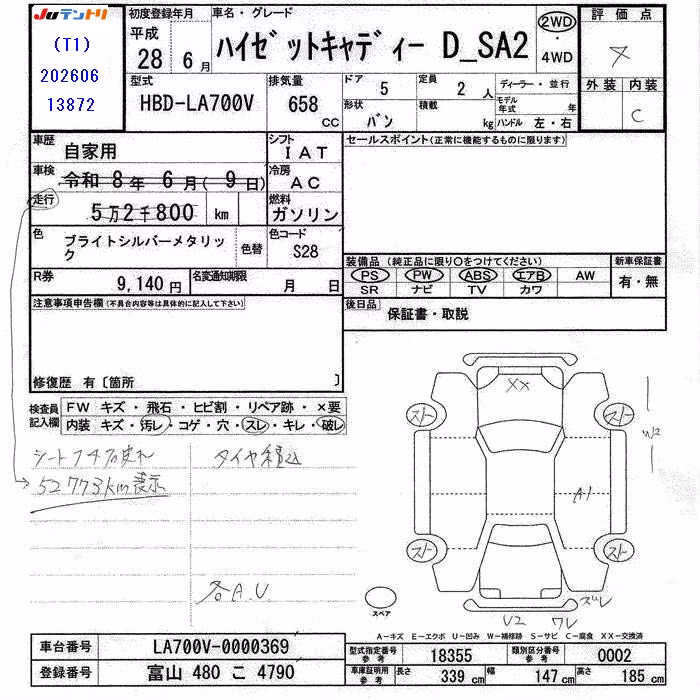 JUテントリ
(T1)
202606
13872
初度登録年月
平成
28 年 6 月
車名・グレード
ハイゼットキャディー D_SA2
2WD
・
4WD
評価点
メ
外装 内装
C
型式
HBD-LA700V
排気量
658
CC
ドア
5
定員
2 人
ディーラー・並行
形状
バン
積載
kg
モデル年式 年
ハンドル 左・右
車歴
自家用
シフト
IAT
車検
令和 8 年 6 月( 9 日)
冷房
AC
走行
5万2千800 km
燃料
ガソリン
色
ブライトシルバーメタリック
色替
色コード
S28
R券
9,140 円
名変通知期限
月 日
セールスポイント(正常に機能するものに限ります)
装備品(純正品に限り○をつけてください)
PS PW ABS エアB AW
SR ナビ TV カワ
新車保証書
有・無
後日品
保証書・取説
注意事項申告欄(不具合内容等は具体的に記入して下さい)
修復歴 有〔箇所 〕
検査員
記入欄
FW キズ・飛石・ヒビ割・リペア跡・×要
内装 キズ・汚レ・コゲ・穴・スレ・キレ・破レ
52773km表示
タイヤ組込
各A.U
XX
スト
スト
W2
A1
スト
スト
スペア
ズレ
U2 ワレ
A-キズ E-エクボ U-凹み W-補修跡 S-サビ C-腐食 XX-交換済
車台番号
LA700V-0000369
登録番号
富山 480 こ 4790
型式指定番号
参考
18355
類別区分番号
参考
0002
車庫証明用
参考
長さ 339 cm
幅 147 cm
高さ 185 cm